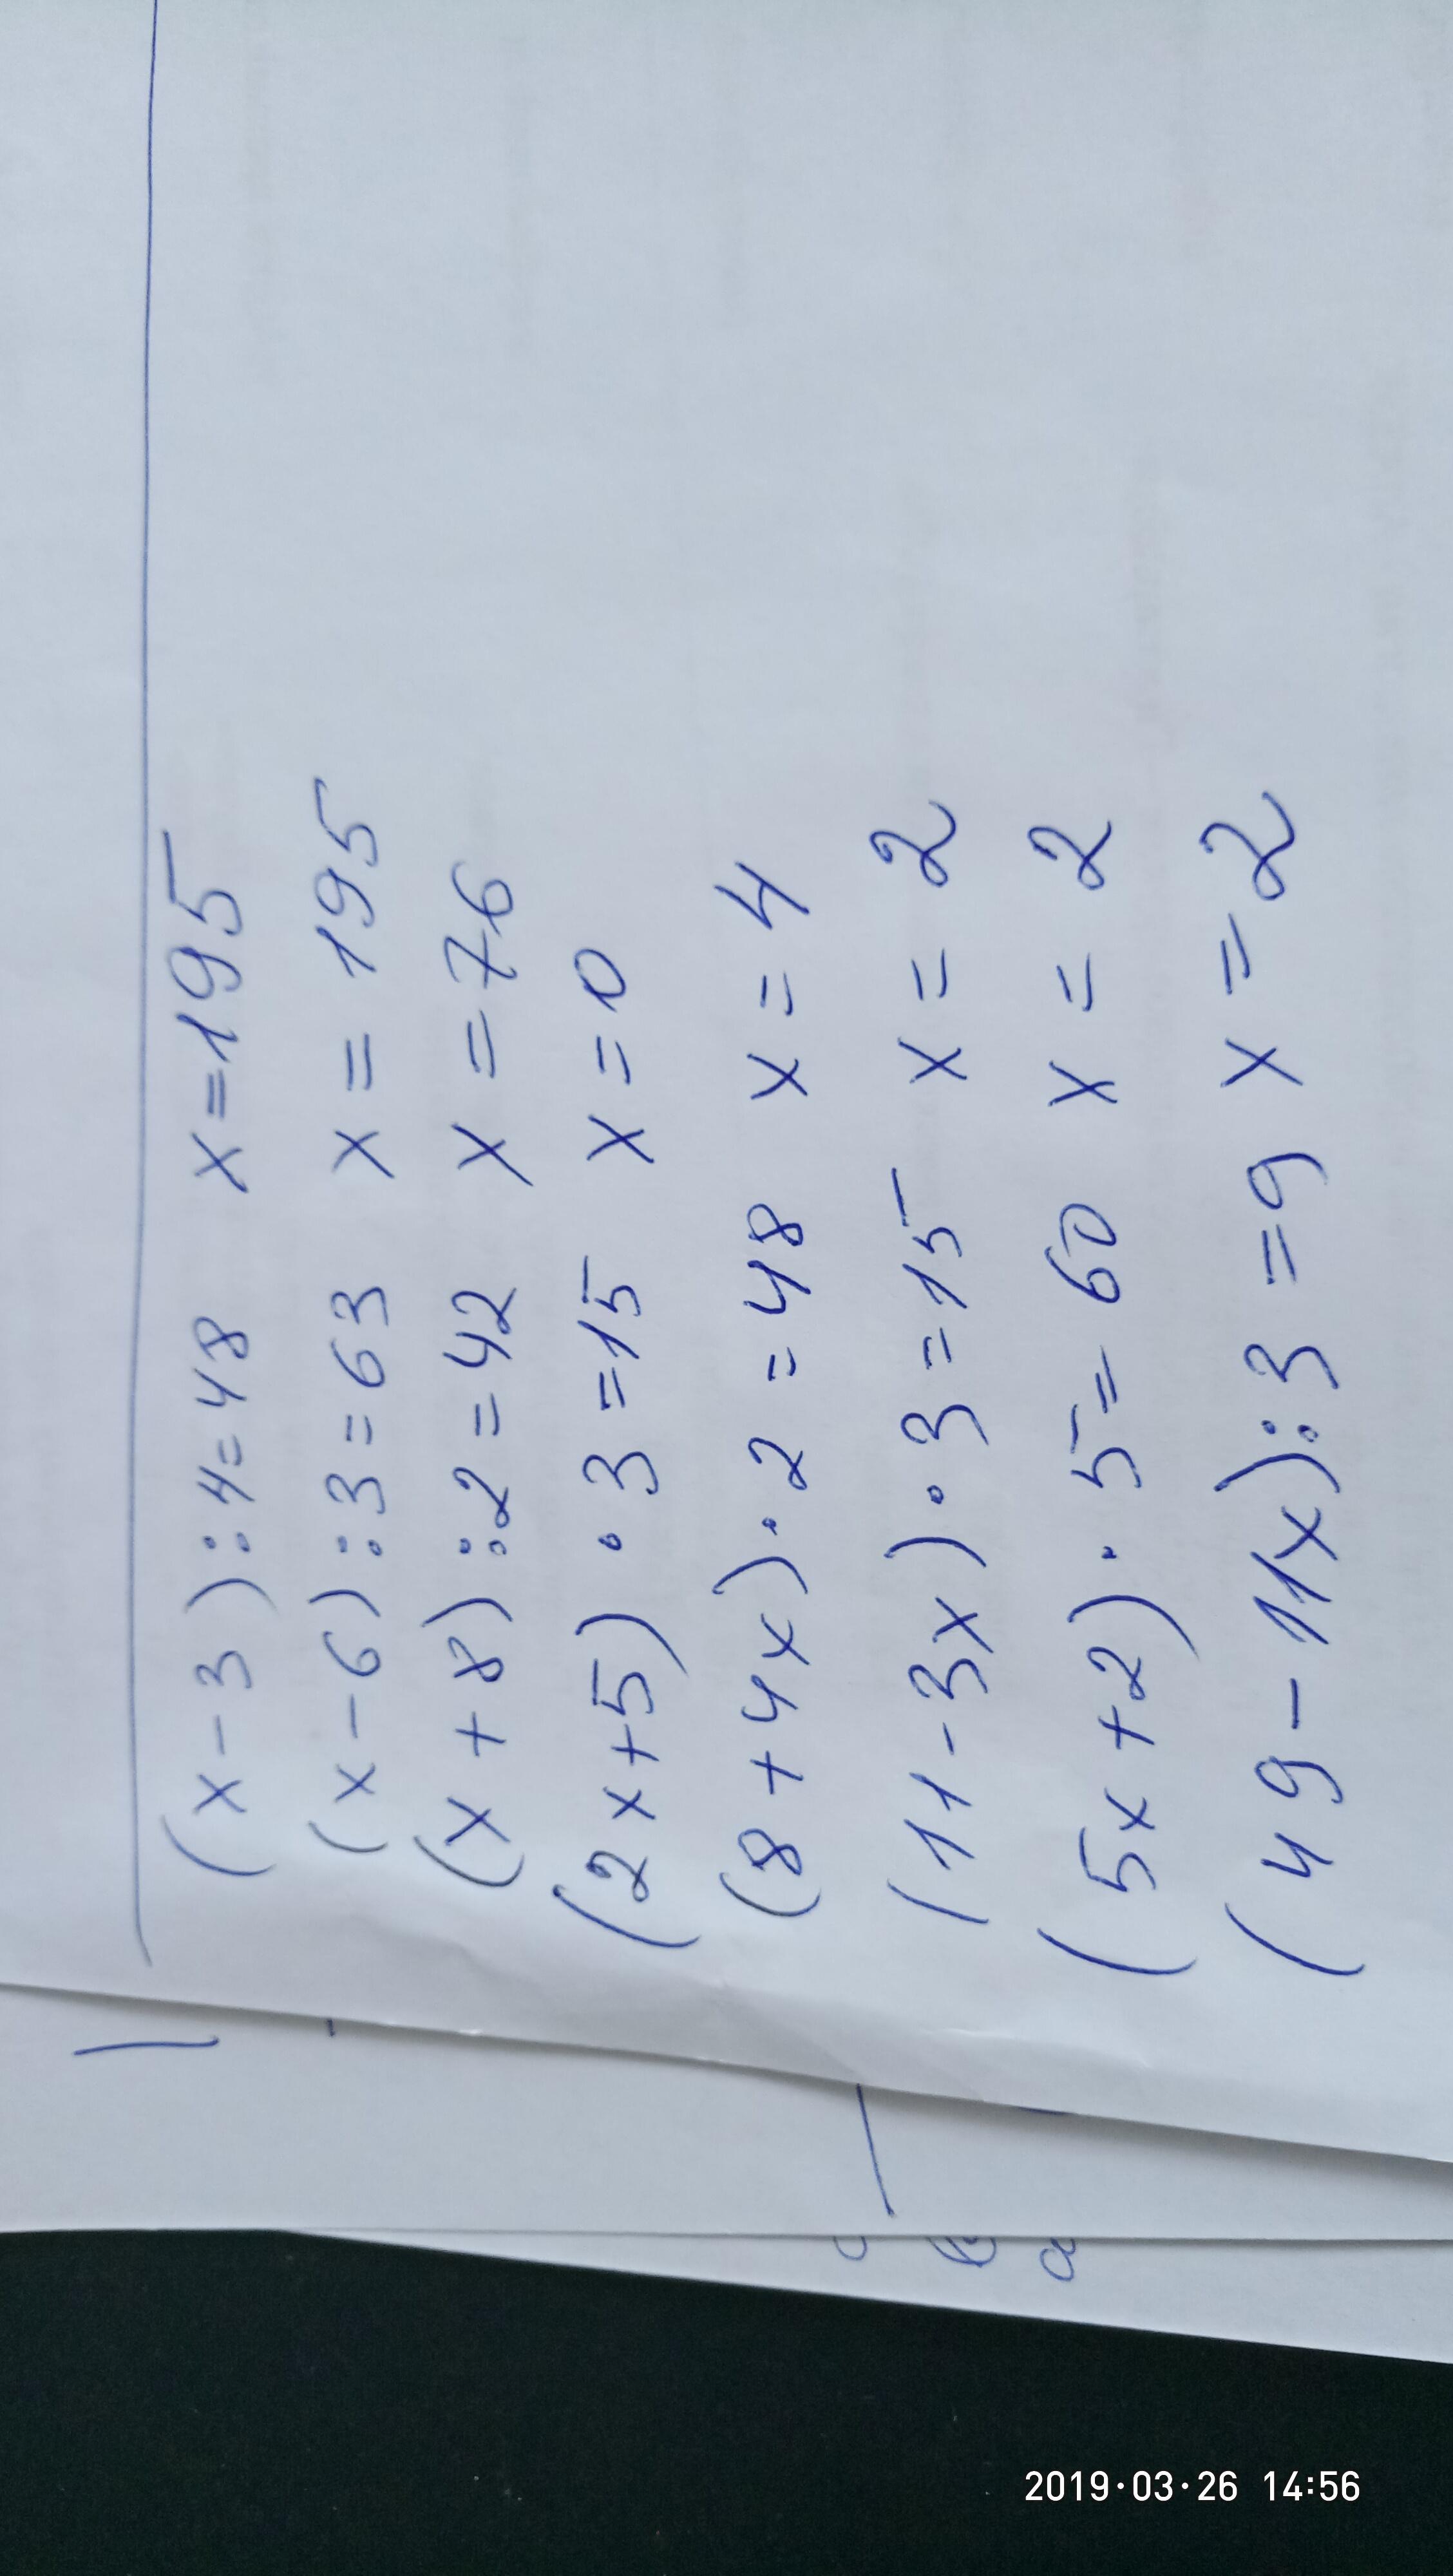 (x-3):4=48 x=195
(x-6):3=63 x=195
(x+8):2=42 x=76
(2x+5)·3=15 x=0
(8+4x)·2=48 x=4
(11-3x)·3=15 x=2
(5x+2)·5=60 x=2
(49-11x):3=9 x=2
2019·03·26 14:56